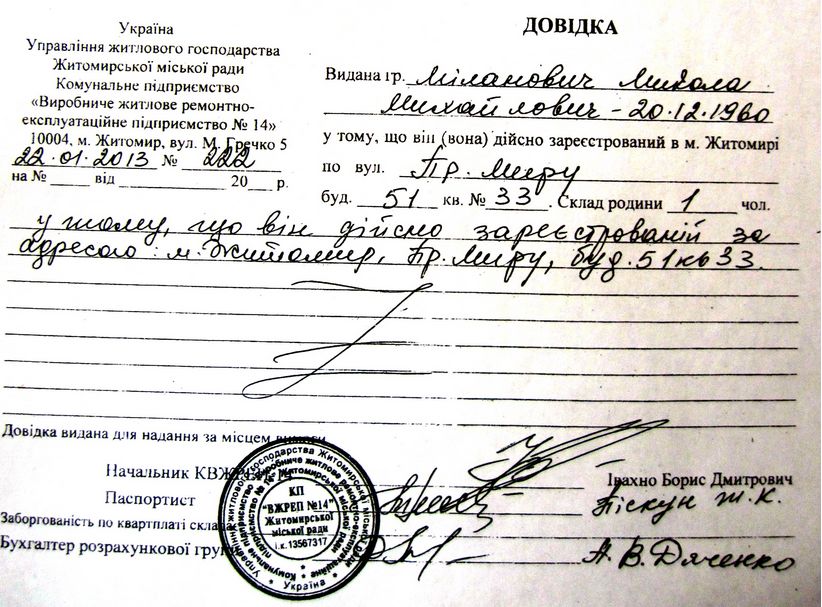 Україна
Управління житлового господарства
Житомирської міської ради
Комунальне підприємство
«Виробниче житлове ремонтно-
експлуатаційне підприємство № 14»
10004, м. Житомир, вул. М. Гречко 5
22.01.2013 № 222
на № від 20 р.
ДОВІДКА
Видана гр. Міланович Микола
Михайлович - 20.12.1960
у тому, що він (вона) дійсно зареєстрований в м. Житомирі
по вул. Пр. Миру
буд. 51 кв. № 33. Склад родини 1 чол.
у тому, що він дійсно зареєстрований за
адресою: м. Житомир, Пр. Миру, буд. 51 кв 33.
Довідка видана для надання за місцем вимоги
Начальник КВЖРЕП
Івахно Борис Дмитрович
Паспортист
Піскун Ж. К.
Заборгованість по квартплаті склада
Бухгалтер розрахункової групи
А. В. Дяченко
Управління житлового господарства Житомирської міської ради
Комунальне підприємство "Виробниче житлове ремонтно-експлуатаційне підприємство № 14" Житомирської міської ради
КП
"ВЖРЕП №14"
Житомирської
міської ради
і.к. 13567317
* Україна *